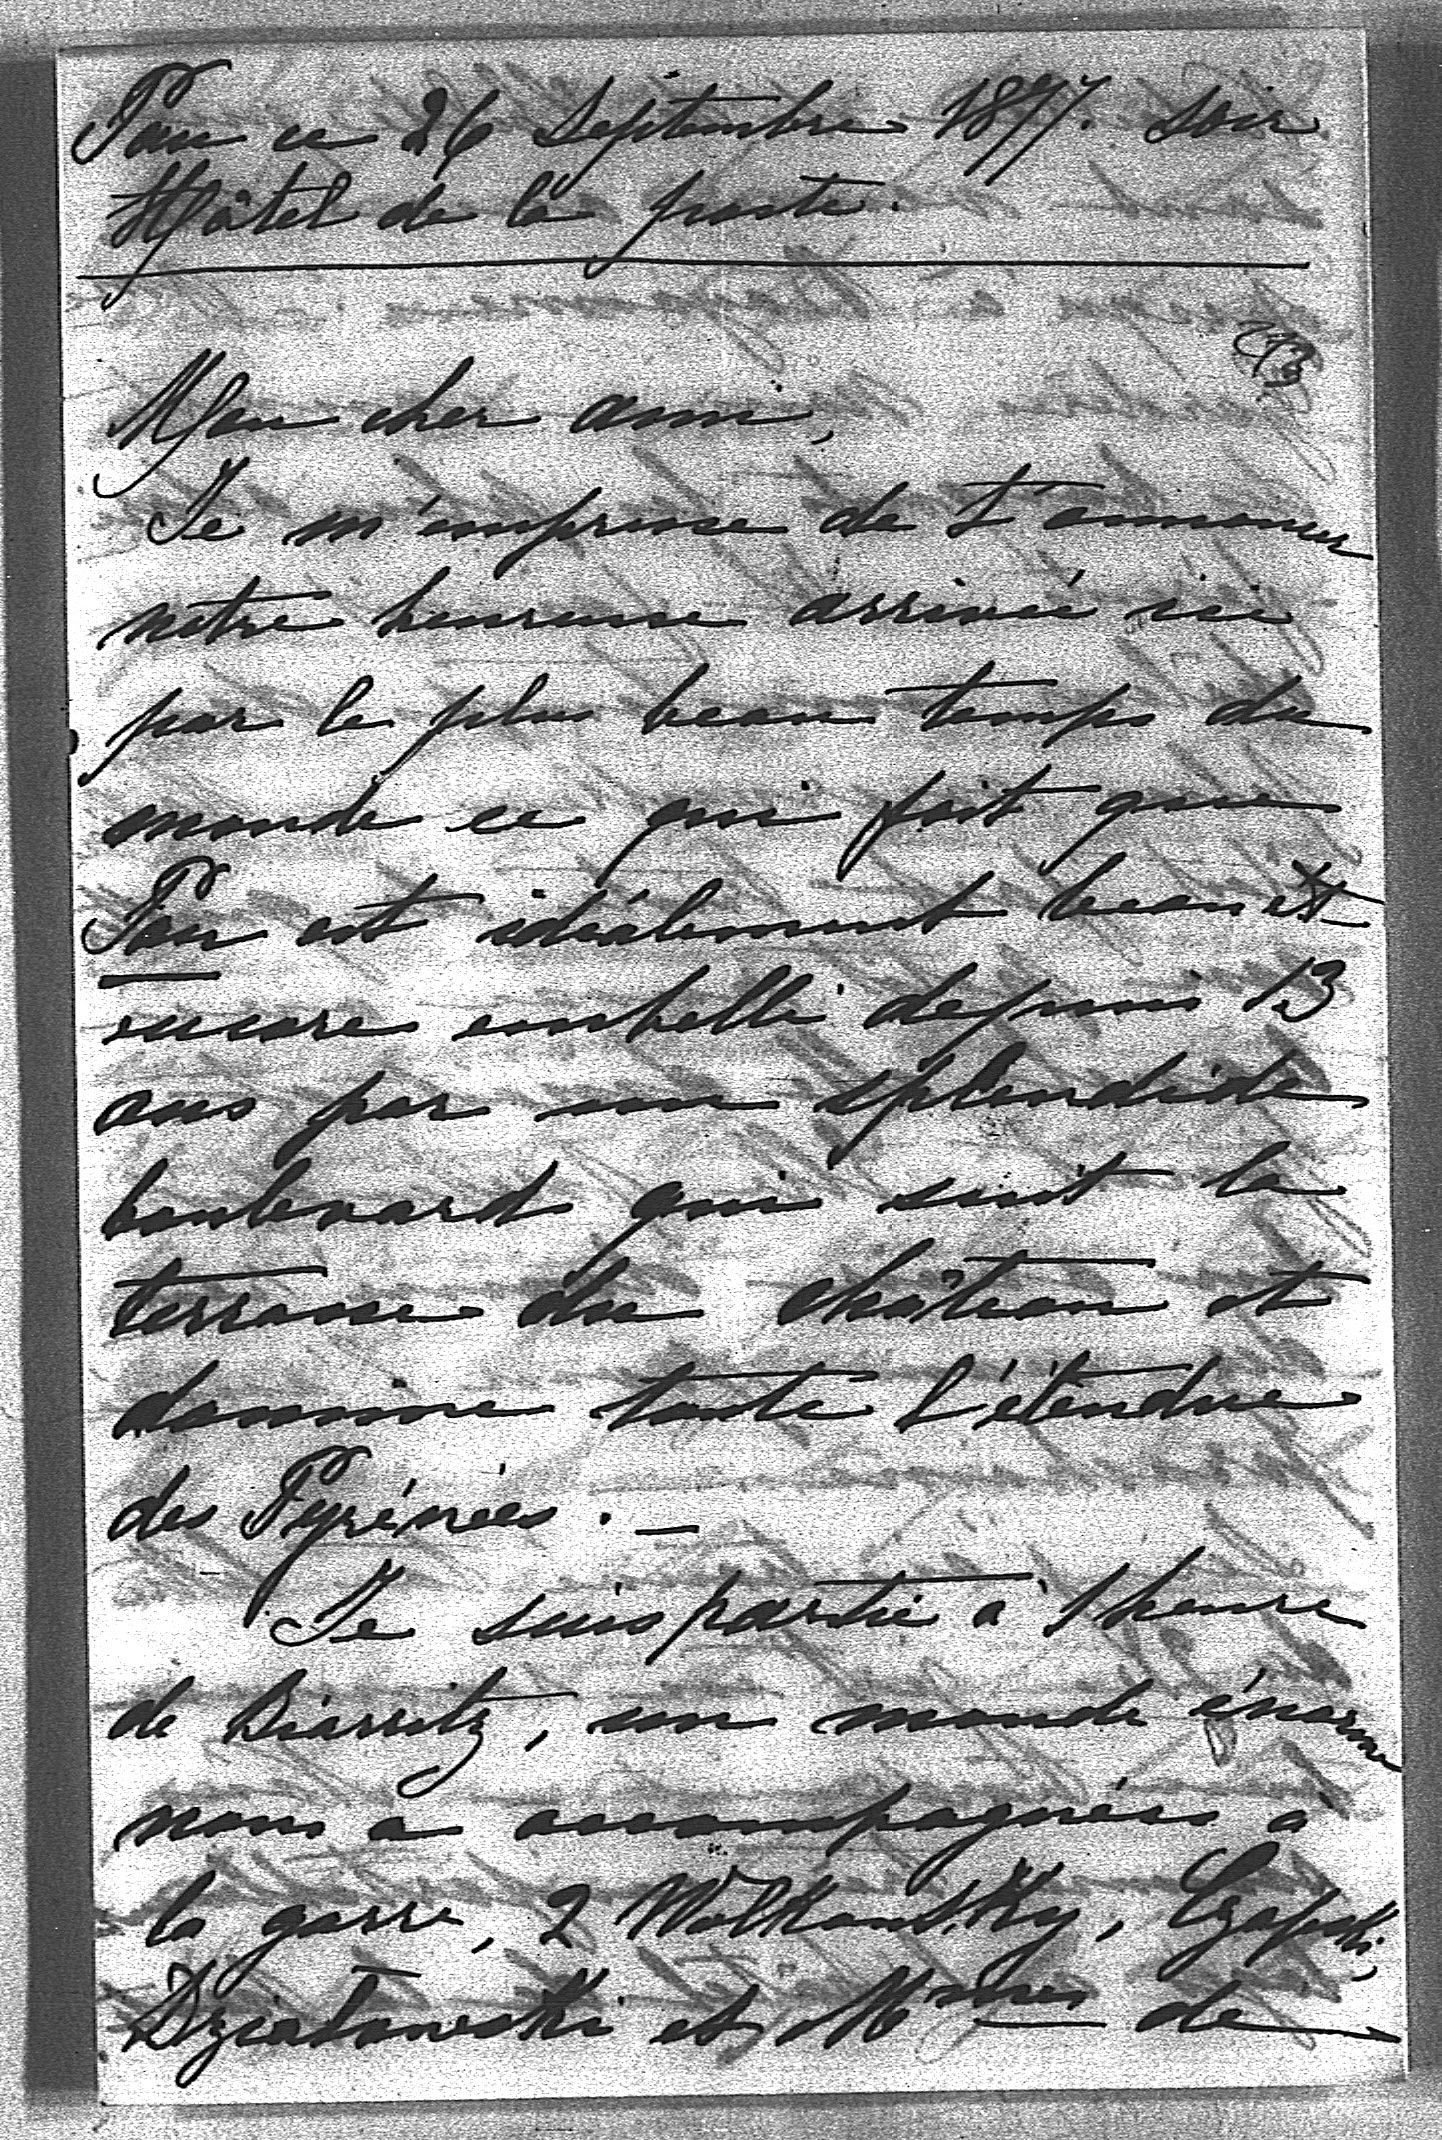 Pau ce 26 Septembre 1897. soir
Hôtel de la poste.
Mon cher ami,
Je m'empresse de t'annoncer
notre heureuse arrivée ici
par le plus beau temps du
monde ce qui fait que
Pau est idéalement beau et
encore embelli depuis 13
ans par un splendide
boulevard qui suit la
terrasse du château et
domine toute l'étendue
des Pyrénées. —
Je suis partie à 1 heure
de Biarritz, un monde énorme
nous a accompagnés à
la garre, 2 Wolkonsky, Czapski,
et Mmes de